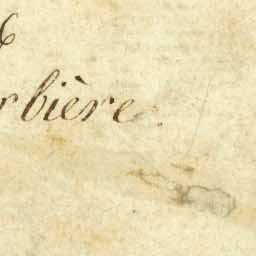 rbière